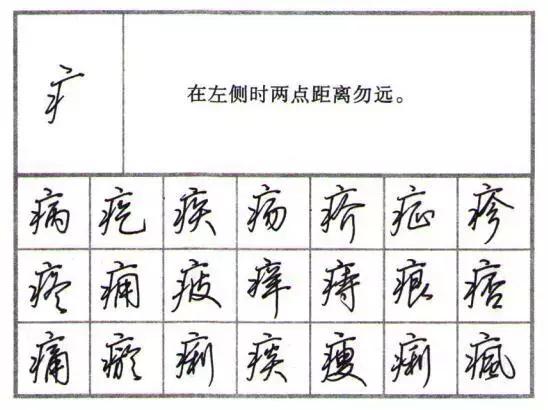 疒
在左侧时两点距离勿远。
病 疙 疾 疡 疥 症 疹
疼 痈 疲 痒 痔 痕 痞
痛 瘀 痢 痰 瘦 瘋